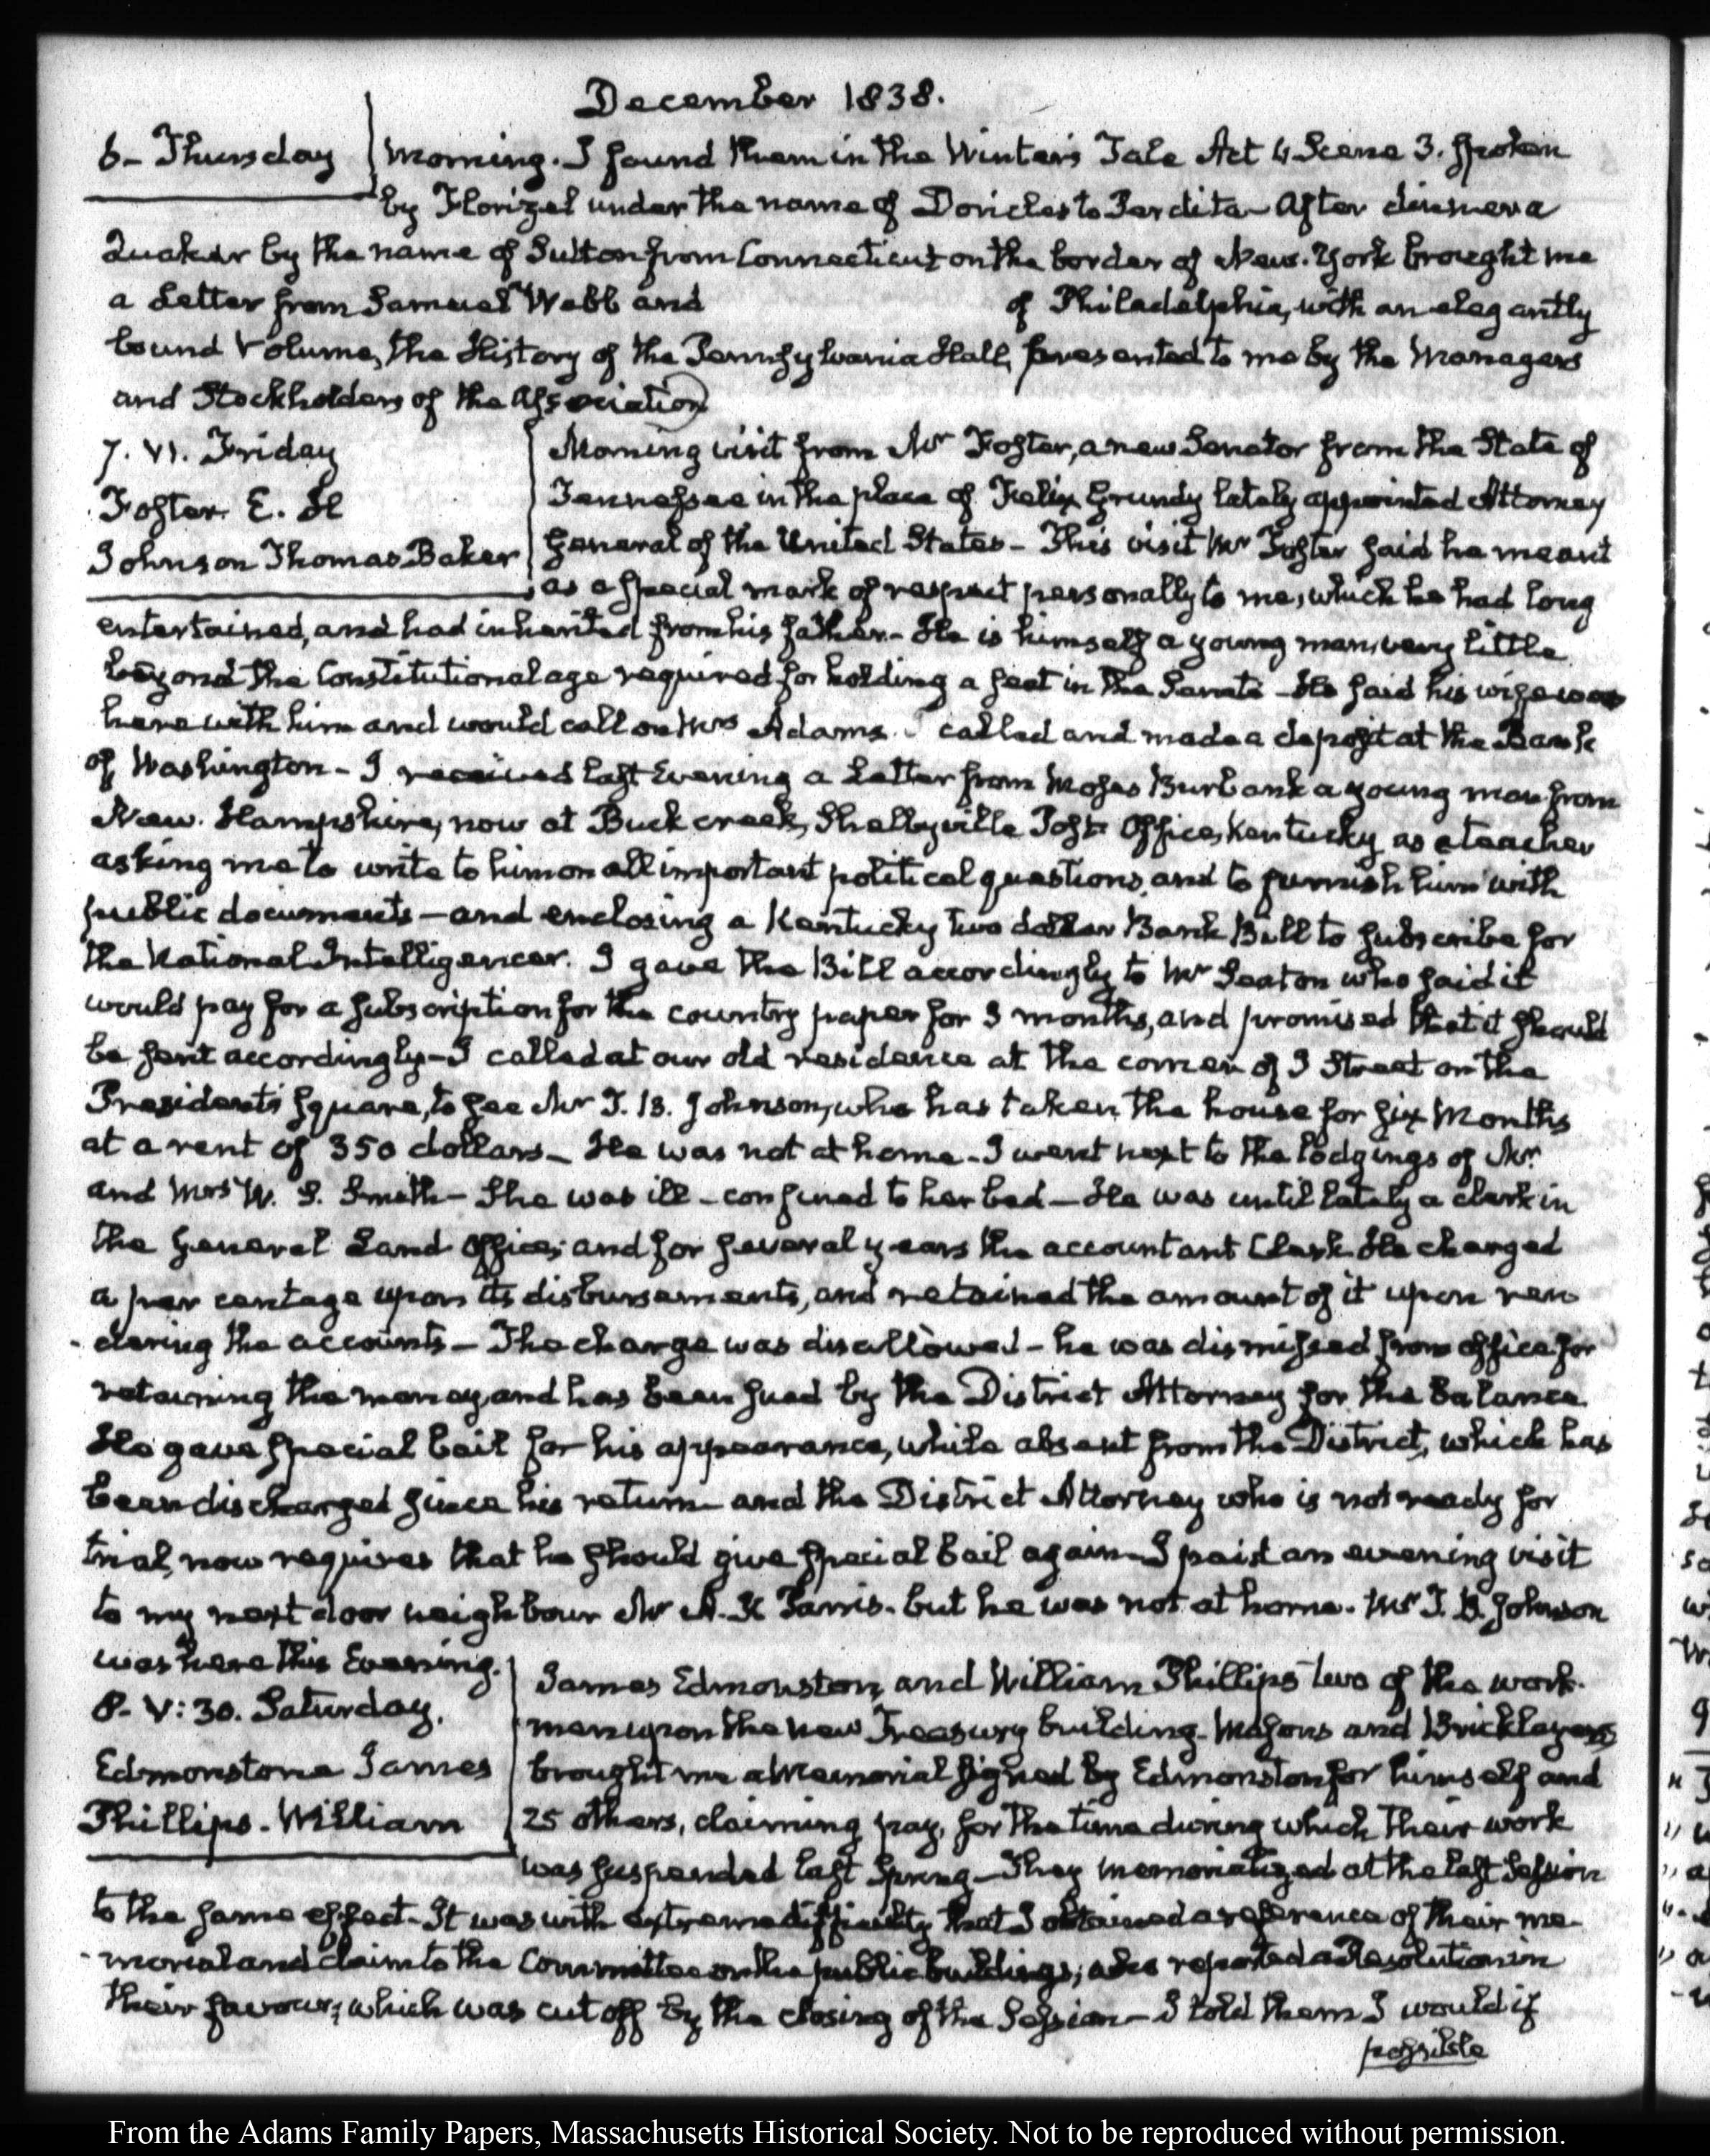 December 1838.
6- Thursday
morning. I found them in the Winter's Tale Act 4 Scene 3. spoken
by Florizel under the name of Doricles to Perdita - After dinner a
Quaker by the name of Sutton from Connecticut on the border of New-York brought me
a Letter from Samuel Webb and of Philadelphia, with an elegantly
bound Volume, the History of the Pennsylvania Hall, presented to me by the Managers
and Stockholders of the Association
7. VI. Friday
Foster. E. H
Johnson Thomas Baker
Morning visit from Mr Foster, a new Senator from the State of
Tennessee in the place of Felix Grundy lately appointed Attorney
General of the United States - This visit Mr Foster said he meant
as a special mark of respect personally to me, which he had long
entertained, and had inherited from his father - He is himself a young man, very little
beyond the Constitutional age required for holding a seat in the Senate - He said his wife was
here with him and would call on Mrs Adams. I called and made a deposit at the Bank
of Washington - I received last Evening a Letter from Moses Burbank a young man from
New-Hampshire, now at Buck creek, Shelbyville Post Office, Kentucky as a teacher
asking me to write to him on all important political questions, and to furnish him with
public documents - and enclosing a Kentucky two dollar Bank Bill to subscribe for
the National Intelligencer. I gave the Bill accordingly to Mr Seaton who said it
would pay for a subscription for the country paper for 3 months, and promised that it should
be sent accordingly - I called at our old residence at the corner of I Street on the
President's square, to see Mr T. B. Johnson, who has taken the house for six Months
at a rent of 350 dollars - He was not at home - I went next to the lodgings of Mr
and Mrs W. S. Smith - She was ill - confined to her bed - He was until lately a clerk in
the General Land Office; and for several years the accountant Clerk He charged
a per centage upon its disbursements, and retained the amount of it upon ren-
-dering the accounts - The charge was disallowed - he was dismissed from office for
retaining the money and has been sued by the District Attorney for the balance
He gave special bail for his appearance, while absent from the District, which has
been discharged since his return - and the District Attorney who is not ready for
trial, now requires that he should give special bail again - I paid an evening visit
to my next door neighbour Mr A. K Parris. but he was not at home. Mr T. B. Johnson
was here this Evening.
8- V:30. Saturday.
Edmonstone James
Phillips. William
James Edmonston, and William Phillips two of the work-
men upon the new Treasury building - Masons and Bricklayers
brought me a Memorial signed by Edmonston for himself and
25 others, claiming pay, for the time during which their work
was suspended last Spring - They memorialized at the last Session
to the same effect - It was with extreme difficulty that I obtained a reference of their me-
-morial and claim to the Committee on the public buildings; who reported a Resolution in
their favour; which was cut off by the closing of the Session - I told them I would if
possible
From the Adams Family Papers, Massachusetts Historical Society. Not to be reproduced without permission.